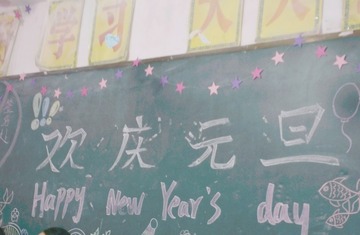 学习
天天
!!!
欢庆元旦
Happy New Year's day